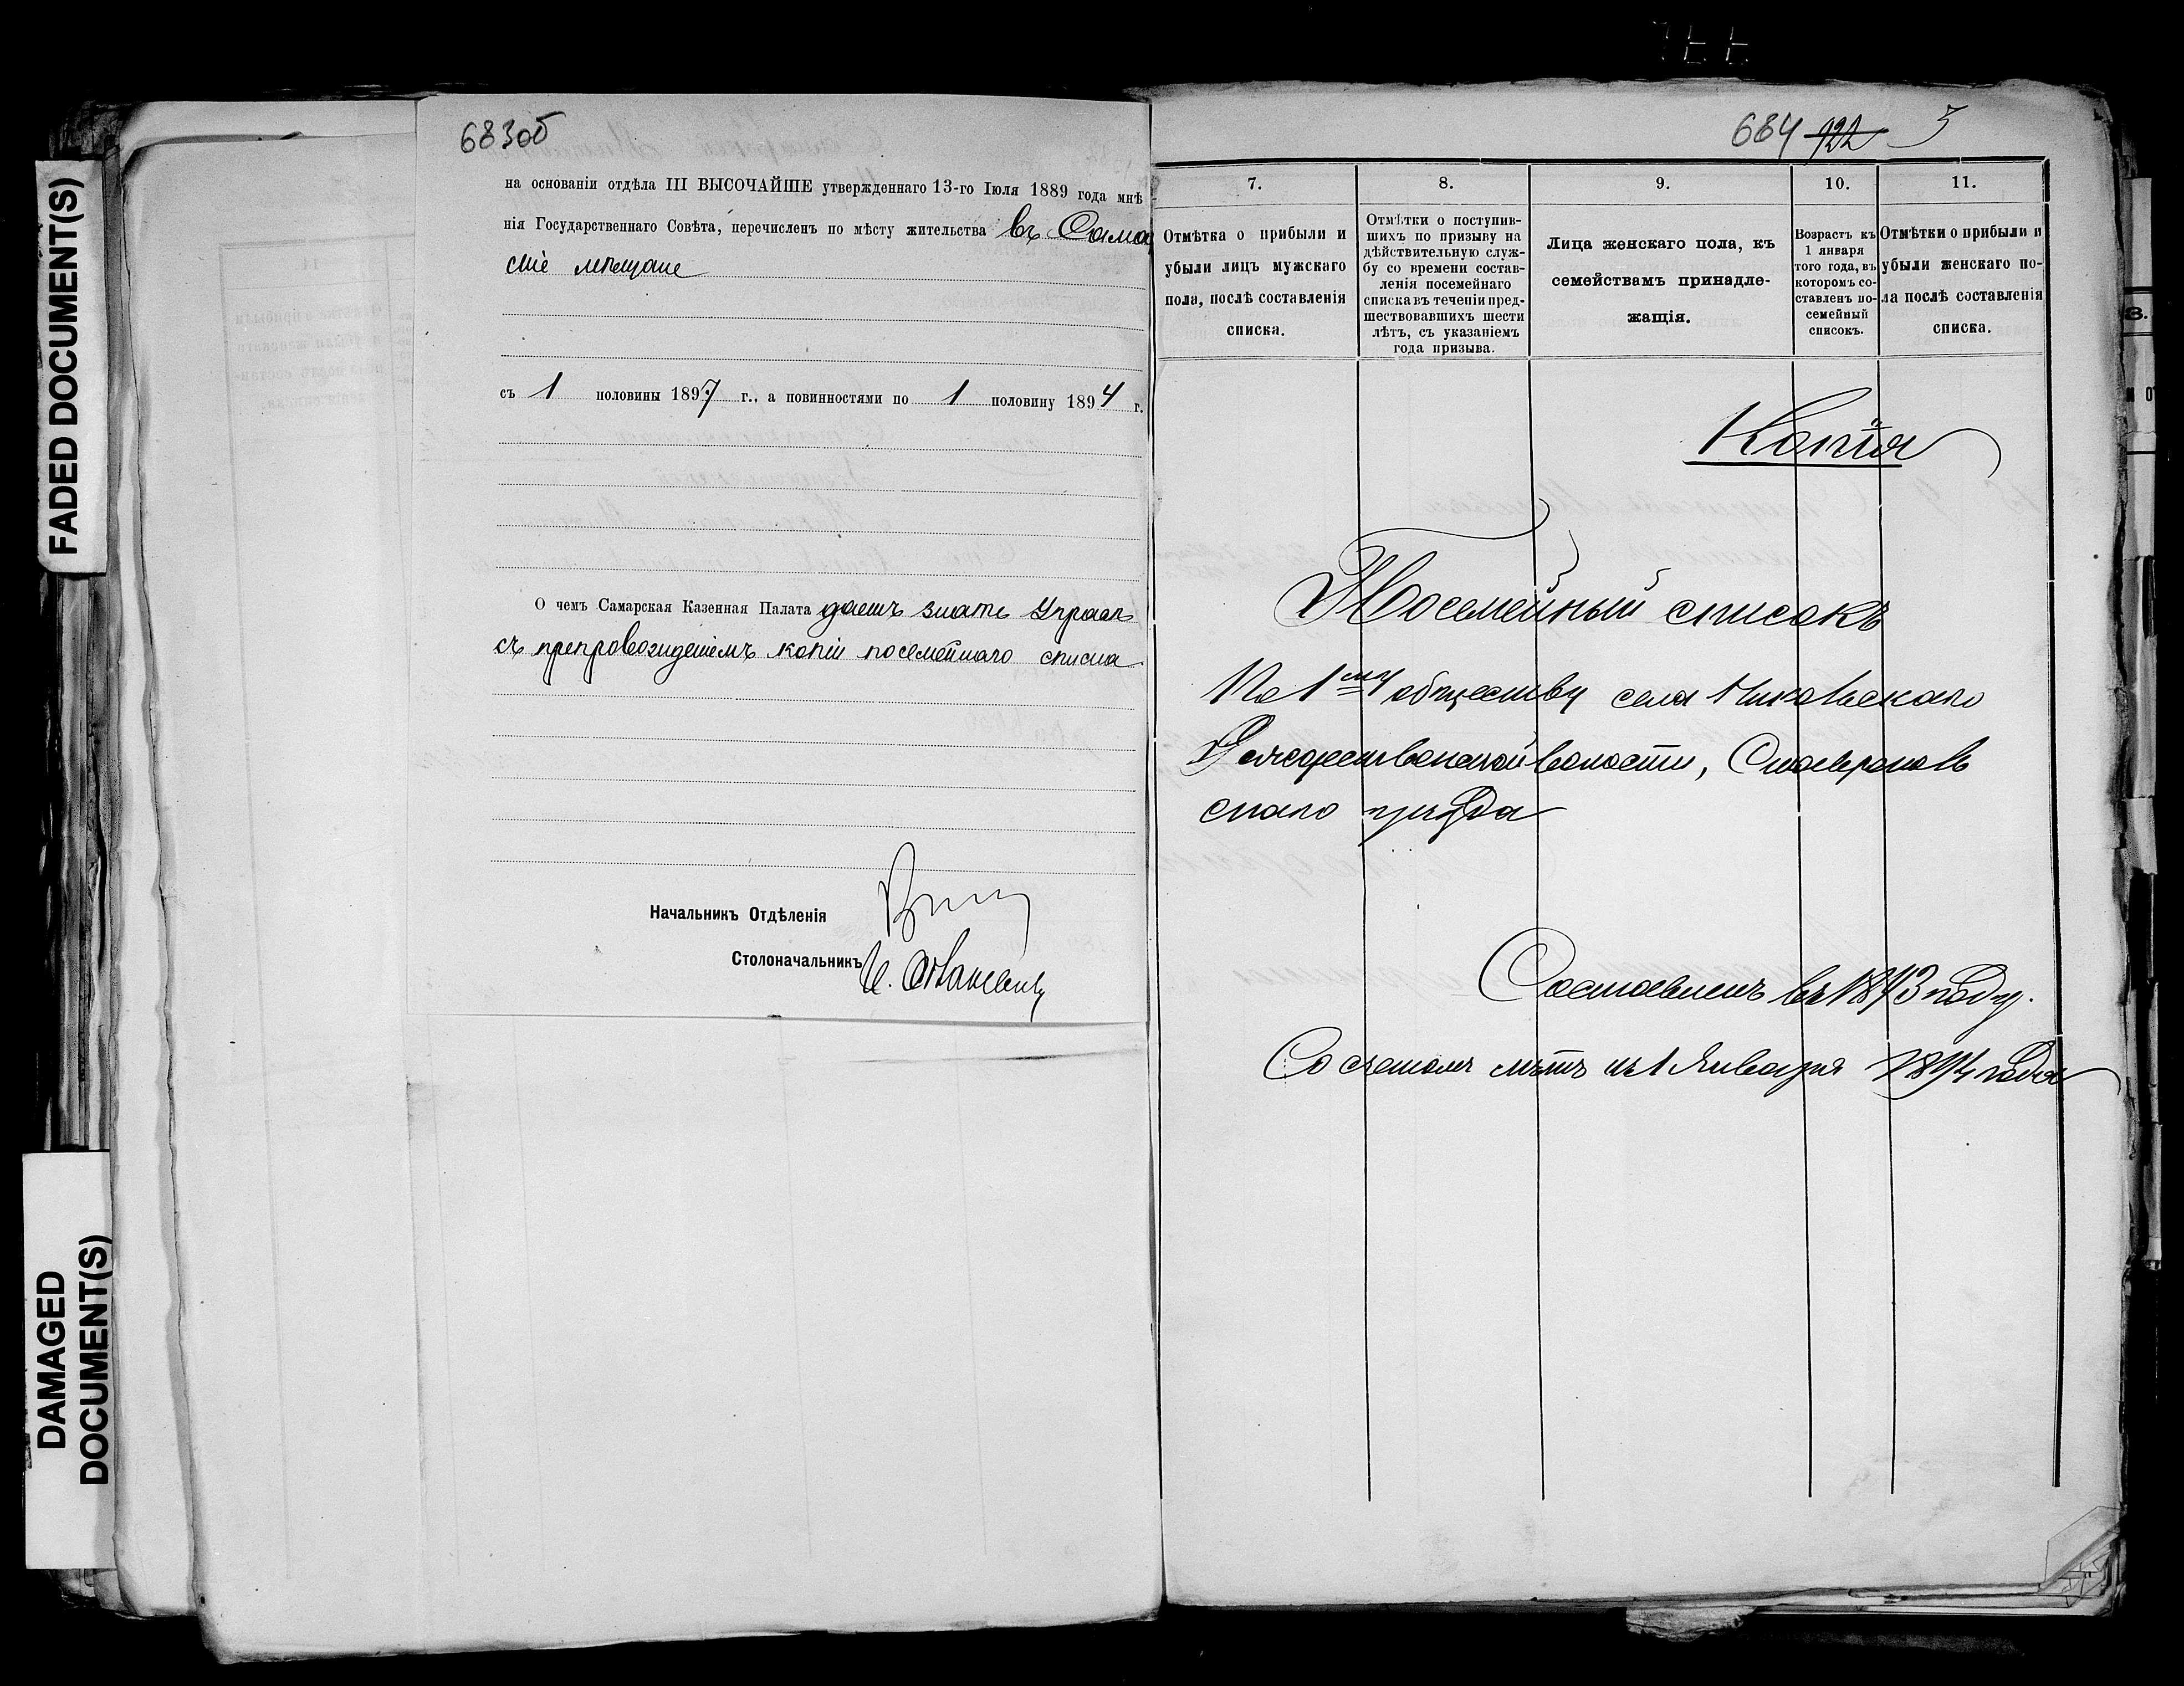 FADED DOCUMENT(S)
DAMAGED
DOCUMENT(S)
683об
на основаніи отдѣла III ВЫСОЧАЙШЕ утвержденнаго 13-го Іюля 1889 года мнѣ
нія Государственнаго Совѣта, перечисленъ по мѣсту жительства въ Сама
скіе мѣщане
съ 1 половины 1897 г., а повинностями по 1 половину 1894 г.
О чемъ Самарская Казенная Палата даетъ знать Управѣ
съ препровожденіемъ копіи посемейнаго списка
Начальникъ Отдѣленія
Столоначальникъ
684 922 5
7.
Отмѣтка о прибыли и
убыли лицъ мужскаго
пола, послѣ составленія
списка.
8.
Отмѣтки о поступив-
шихъ по призыву на
дѣйствительную служ-
бу со времени состав-
ленія посемейнаго
списка въ теченіи пред-
шествовавшихъ шести
лѣтъ, съ указаніемъ
года призыва.
9.
Лица женскаго пола, къ
семействамъ принадле-
жащія.
10.
Возрастъ къ
1 января
того года, въ
которомъ со-
ставленъ по-
семейный
списокъ.
11.
Отмѣтки о прибыли и
убыли женскаго по-
ла послѣ составленія
списка.
Копія
Посемейный списокъ
По 1му обществу села Никольскаго
волости, Ставрополь
скаго уѣзда
Составленъ въ 1893 году.
Со счетомъ лѣтъ къ 1 Января 1894 года